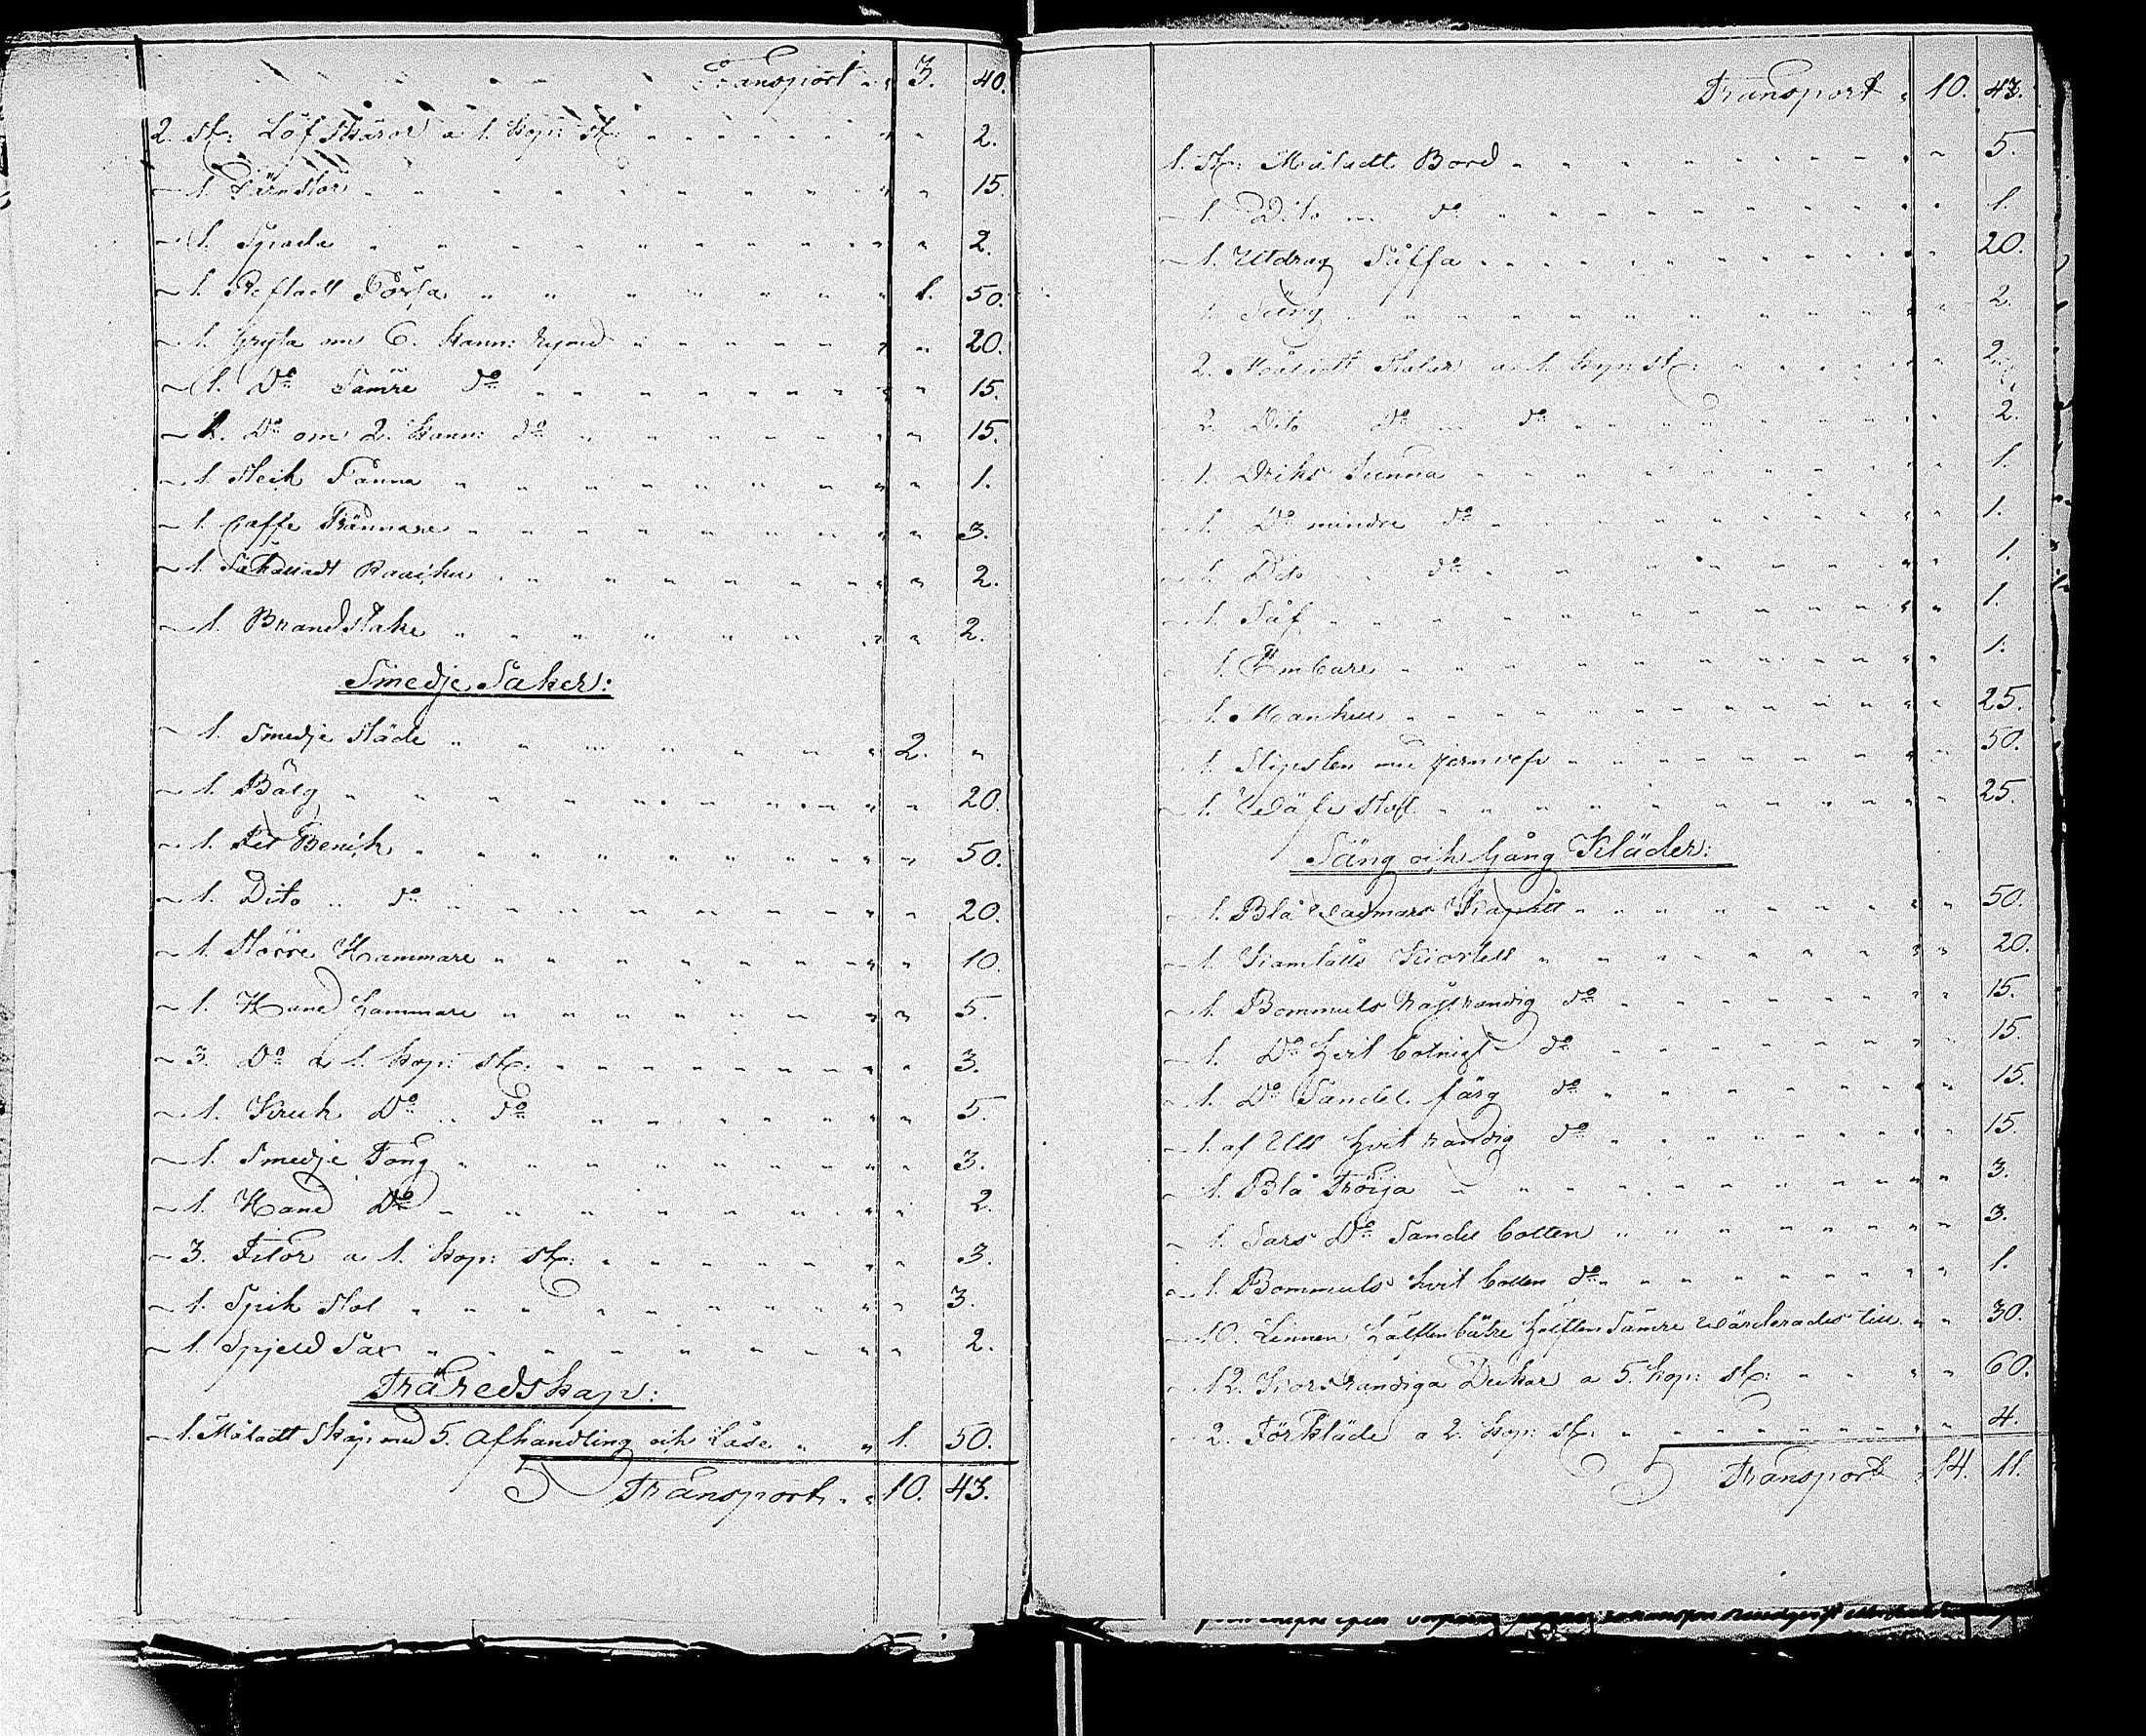 Transport 3. 40.
2. St: Löf Skäror a 1. kop: St: 2.
1. Järnstör 15.
1. Spada 2.
1. Refladt Börsa 1. 50.
1. Gryta om 6. Kann: Rymd 20.
1. Do Sämre do 15.
1. Do om 2. Kann: do 15.
1. Steik Panna 1.
1. Caffe Brännare 3.
1. Raaiku 2.
1. Brandstake 2.
Smedje Saker:
1. Smedje städe 2. "
1. Bälg 20.
1. Fil Benik 50.
1. Dito do 20.
1. Större Hammare 10.
1. Hand hammare 5.
3. Do a 1. kop: st: 3.
1. Skruk Do do 5.
1. Smedje Tång 3.
1. Hand Do 2.
3. Filor a 1. kop: st: 3.
1. Spik stol 3.
1. Spjeld Sax 2.
Träredskap:
1. Måladt Skåp med 5. Afhandling och Låse 1. 50.
Transport 10. 43.
Transport 10. 43.
1. St: Måladt Bord 5.
1. Dito do 1.
1. Utdrag Såffa 20.
1. Säng 2.
2. Måladt Stolar a 1. kop st: 2.
2. Dito Do do 2.
1. Driks Tunna 1.
1. Do mindre do 1.
1. Dito do 1.
1. Såf 1.
1. Embare 1.
1. Mankell 25.
1. Slipsten med jernvef 50.
1. Wäfs stol 25.
Säng och Gång Kläder:
1. Blå Wadmars Kapått 50.
1. Kamlåtts Kiortell 20.
1. Bommuls rägrandig do 15.
1. Do hvit botnigt do 15.
1. Do Sandel färg do 15.
1. af Ull hvit randig do 15.
1. Blå Tröija 3.
1. Sars Do Sandel botten 3.
1. Bommuls hvit botten do 1.
10. Linnen hälften bätre hälften Sämre wärderades till 30.
12. Korsrandiga Dukar a 5. kop: st: 60.
2. Förkläde a 2. kop: st: 4.
Transport 14. 11.